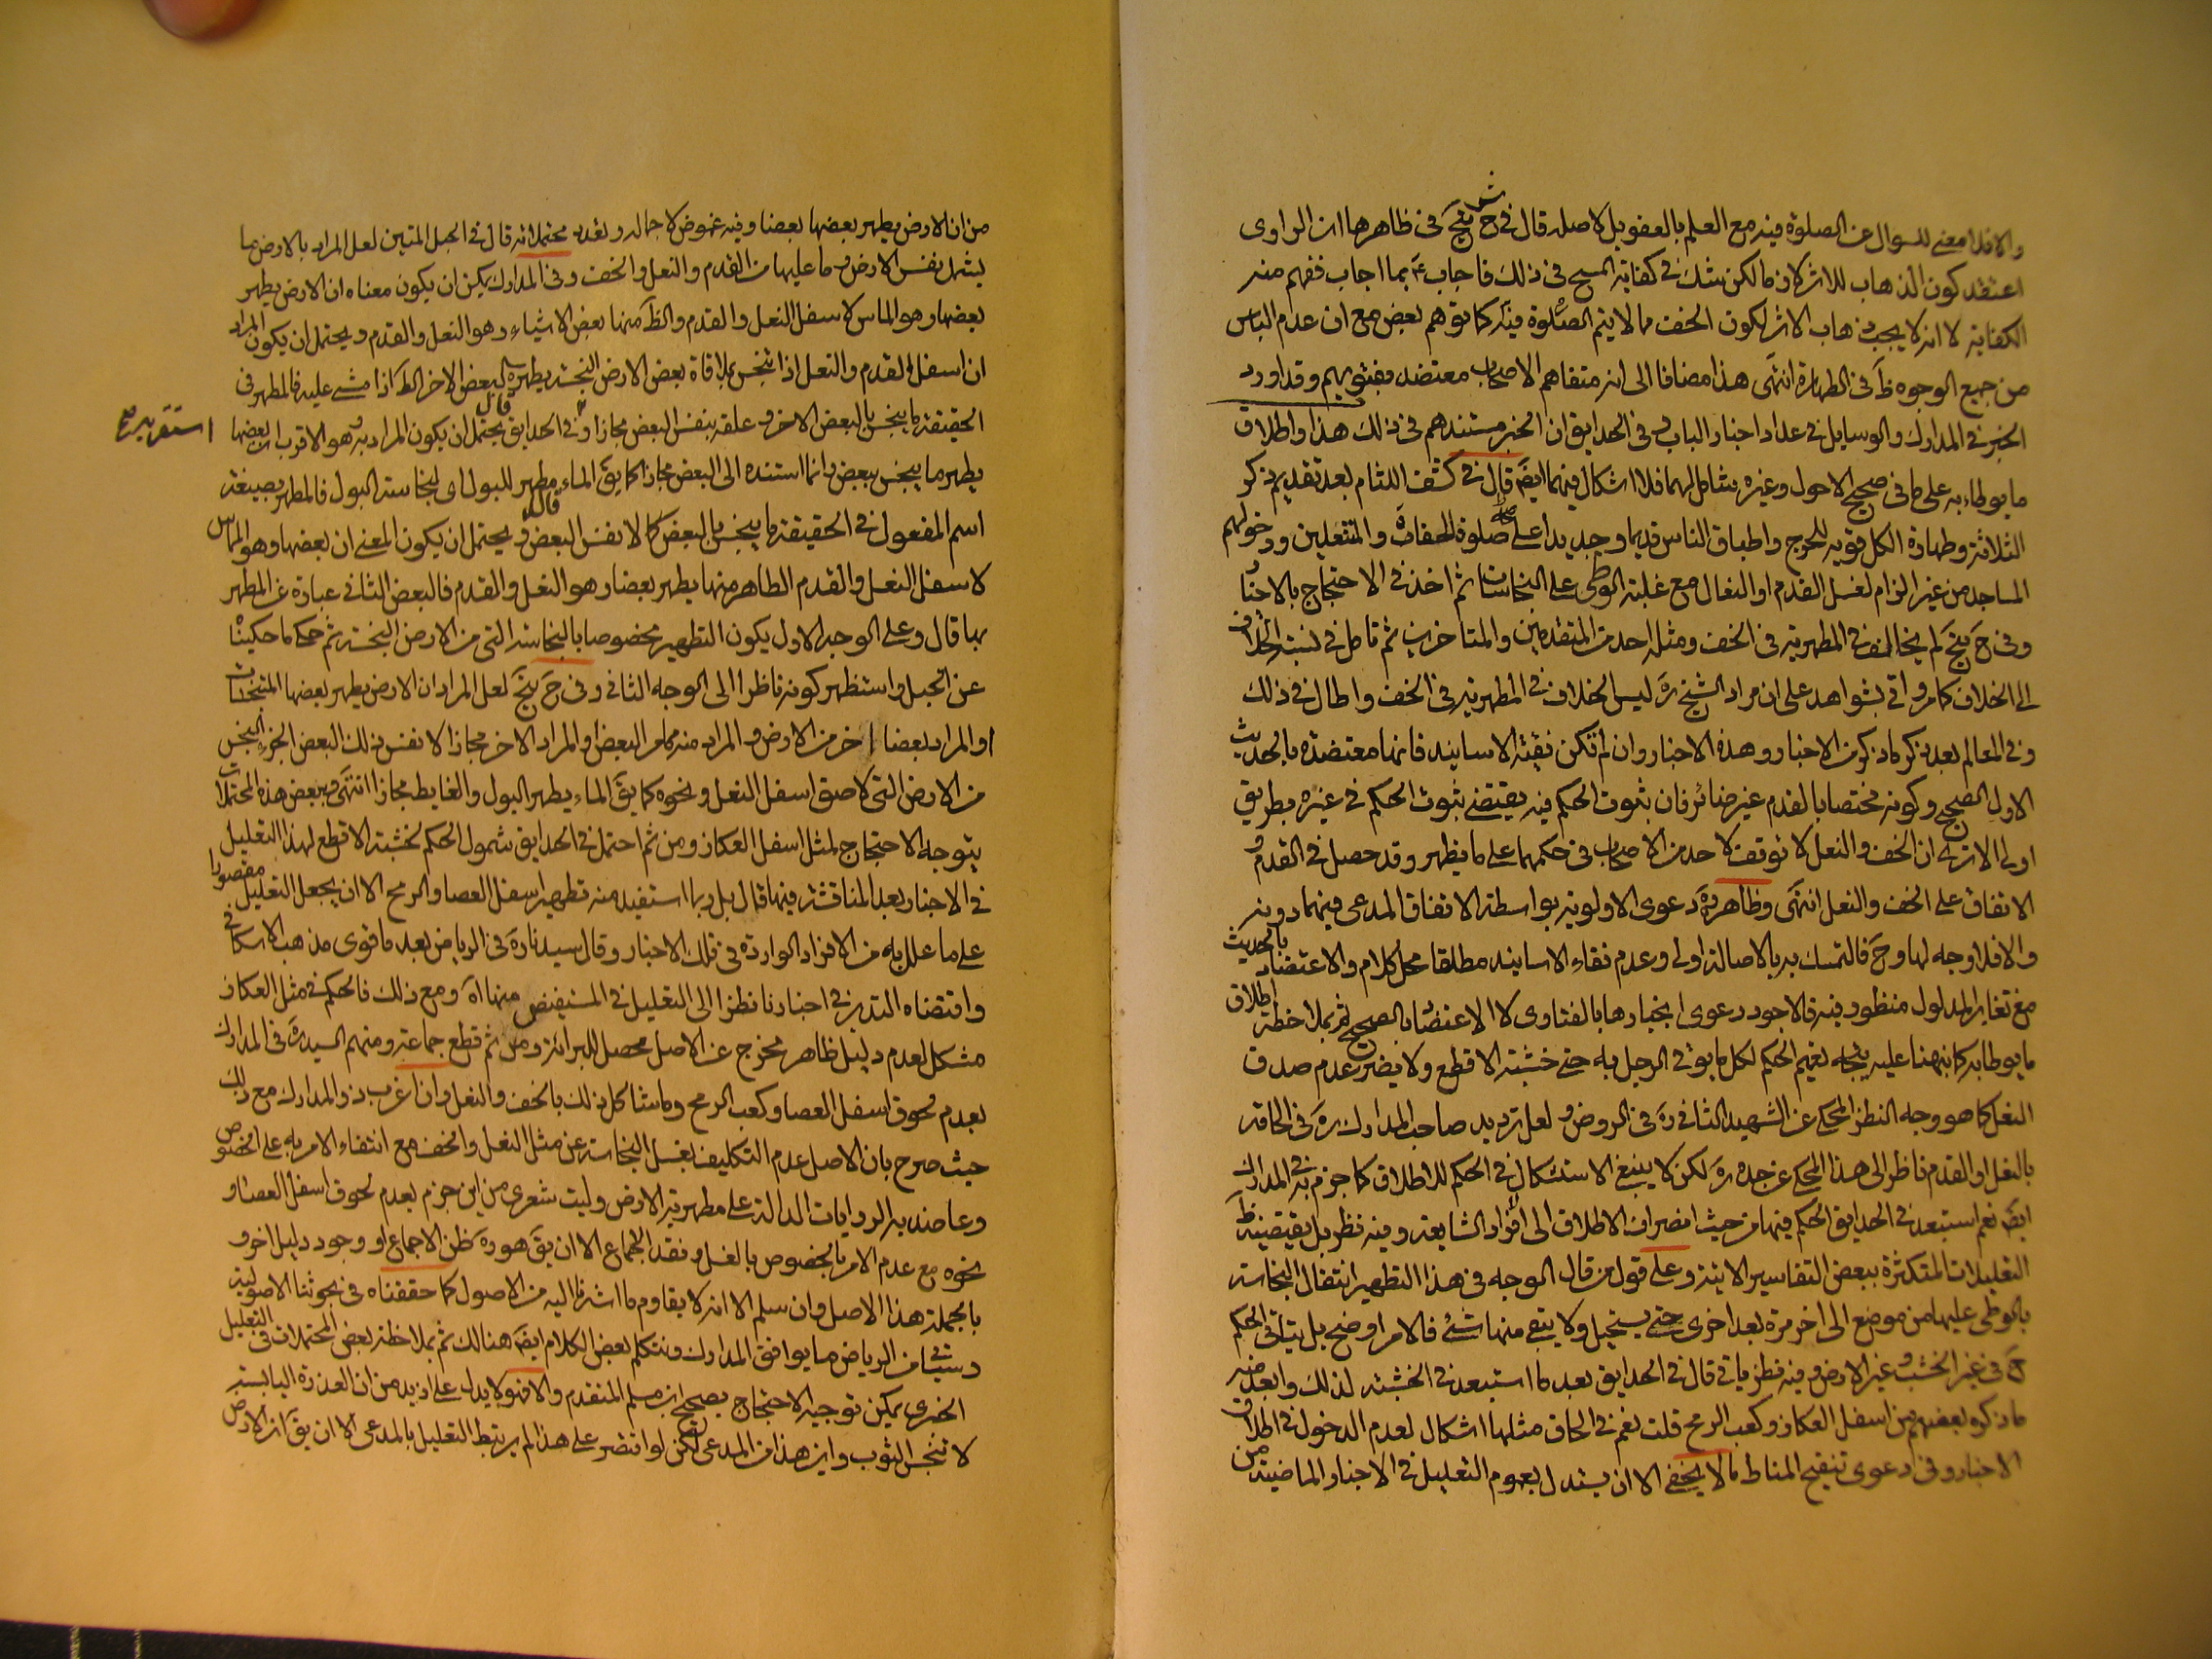 والا فلا معنى للسوال عن الصلوة فيه مع العلم بالعفو بل لاصله قال في ح يتج في ظاهرها ان الراوى
اعتقد كون الذهاب للاثر لازما لكن شك في كفاية المسح في ذلك فاجاب ع بما اجاب ففهم منه
الكفاية لا انه لا يجب ذهاب الاثر لكون الخف مما لا يتم الصلوة فيه كما توهم بعض مع ان عدم الباس
من جميع الوجوه ظ في الطهارة انتهى هذا مضافا الى انه متفاهم الاصحاب معتضد بفتويهم وقد اورد
الخبر في المدارك والوسايل في عداد اخبار الباب وفي الحدايق ان الخبر مستندهم في ذلك هذا واطلاق
ما يوطاء به على ما في صحيح الاحول وغيره شامل لهما فلا اشكال فيهما ايض قال في كشف اللثام بعد تقديم ذكر
الثلاثة وطهارة الكل قويه للحرج واطباق الناس قديما وجديدا على صلوة الحفاة والمتنعلين ودخولهم
المساجد من غير الزام لغسل القدم او النعال مع غلبة الوطى على النجاسات ثم اخذ في الاحتجاج بالاخبار
وفي ح يتج لم يخالف في المطهرية في الخف ومثله احد من المتقدمين والمتاخرين ثم تامل في نسبة الخلاف
الى الخلاف كما مر واتى بشواهد على ان مراد الشيخ ره ليس الخلاف في المطهرية في الخف واطال في ذلك
وفي المعالم بعد ذكر ما ذكر من الاخبار وهذه الاخبار وان لم تكن نقية الاسانيد فانها معتضدة بالحديث
الاول الصحيح وكونه مختصا بالقدم غير ضائر فان ثبوت الحكم فيه يقتضى ثبوت الحكم في غيره بطريق
اولى الا ترى ان الخف والنعل لا توقف لاحد من الاصحاب في حكمهما على ما يظهر وقد حصل في القدم و
الاتفاق على الخف والنعل انتهى وظاهره دعوى الاولوية بواسطة الاتفاق المدعى فيهما دونه
والا فلا وجه لها وح فالتمسك به بالاصالة اولى وعدم نقاء الاسانيد مطلقا محل كلام والاعتضاد بالحديث
مع تغاير المدلول منظور فيه فالاجود دعوى انجبارها بالفتاوى لا الاعتضاد بالصحيح ثم بملاحظة اطلاق
ما يوطا به كما نبهنا عليه يتجه تعميم الحكم لكل ما يوقى الرجل به حتى خشبة الاقطع ولا يضر عدم صدق
النعل كما هو وجه النظر المحكى عن الشهيد الثانى ره في الروض ولعل ترديد صاحب المدارك ره في الحاقه
بالنعل او القدم ناظر الى هذا المحكى عن جده ره لكن لا ينبغى الاستشكال في الحكم للاطلاق كما جزم به في المدارك
ايض نعم استبعد في الحدايق الحكم فيها من حيث انصراف الاطلاق الى الافراد الشايعة وفيه نظر بل يقتضيه ظ
التعليلات المتكثرة ببعض التفاسير الاتية وعلى قول من قال الوجه في هذا التطهير انتقال النجاسة
بالوطى عليها من موضع الى اخر مرة بعد اخرى حتى يستحيل ولا يبقى منها شئ فالامر اوضح بل يتاتى الحكم
ح في غير الخشب وغير الارض وفيه نظر ياتى قال في الحدايق بعد ما استبعد في الخشبة لذلك وابعد منه
ما ذكره بعضهم من اسفل العكاز وكعب الرمح قلت نعم في الحاق مثلها اشكال لعدم الدخول في اطلاق
الاخبار وفى دعوى تنقيح المناط ما لا يخفى الا ان يستدل بعموم التعليل في الاخبار الماضية من
من ان الارض يطهر بعضها بعضا وفيه غموض لاجماله وتعدد محتملاته قال في الحبل المتين لعل المراد بالارض ما
يشمل نفس الارض وما عليها من القدم والنعل والخف وفى المدارك يمكن ان يكون معناه ان الارض يطهر
بعضها وهو المماس لاسفل النعل والقدم والظ منها بعض الاشياء وهو النعل والقدم ويحتمل ان يكون المراد
ان اسفل القدم والنعل اذا تنجس بملاقاة بعض الارض النجسة يطهره البعض الاخر الظ اذا مشى عليه فالمطهر في
الحقيقة ما ينجس بالبعض الاخر وعلقه بنفس البعض مجازا وفى الحدايق قال يحتمل ان يكون المراد به وهو الاقرب ان بعضها
استقربه مح
يطهر ما ينجس ببعض وانما استنده الى البعض مجازا كما يق الماء مطهر للبول اى لنجاسة البول فالمطهر بصيغة
اسم المفعول في الحقيقة ما ينجس بالبعض كما لا نفس البعض قال و يحتمل ان يكون المعنى ان بعضها وهو المماس
لاسفل النعل والقدم الطاهر منها يطهر بعضا وهو النعل والقدم فالبعض الثانى عبارة عن المطهر
بها قال وعلى الوجه الاول يكون التطهير مخصوصا بالنجاسة التى من الارض النجسة ثم حكى ما حكيناه
عن الحبل واستظهر كونه ناظرا الى الوجه الثانى وفى ح يتج لعل المراد ان الارض يطهر بعضها المتنجسات
او المراد بعضا اخر من الارض والمراد منه مما مر البعض او المراد الاخر مجازا لا نفس ذلك البعض الجزء النجس
من الارض التى لاصق اسفل النعل ونحوه كما يق الماء يطهر البول والغايط مجازا انتهى وببعض هذه المحتملات
يتوجه الاحتجاج لمثل اسفل العكاز ومن ثم احتمل في الحدايق شمول الحكم لخشبة الاقطع لهذا التعليل
في الاخبار بعد المناقشة فيها قال بل ربما استفيد منه تطهير اسفل العصا والرمح الا ان يجعل التعليل مقصورا
على ما علل به من الافراد الواردة في تلك الاخبار وقال سيدنا ره في الرياض بعد ما قوى مذهب الاسكافى
واقتضاه التدبر في اخبارنا نظرا الى التعليل في المستفيض منها اه ومع ذلك فالحكم في مثل العكاز
مشكل لعدم دليل ظاهر مخرج عن الاصل محصل للبرائة ومن ثم قطع جماعة ومنهم السيد ره في المدارك
بعدم لحوق اسفل العصا وكعب الرمح وما شاكل ذلك بالخف والنعل وان اغرب ذو المدارك مع ذلك
حيث صرح بان الاصل عدم التكليف بغسل النجاسة عن مثل النعل والخف مع انتفاء الامر به على الخصوص
وعاضد به الروايات الدالة على مطهرية الارض وليت شعرى من اين جزم بعدم لحوق اسفل العصا و
نحوه مع عدم الامر بالخصوص بالغسل وفقد الاجماع الا ان يق هو ره ظن الاجماع او وجود دليل اخر و
بالجملة هذا الاصل وان سلم الا انه لا يقاوم ما اشرنا اليه من الاصول كما حققناه في بحوثنا الاصولية
وستى في الرياض ما يوافق المدارك ونتكلم بعض الكلام ايض هنالك ثم بملاحظة بعض المحتملات في التعليل
الخبرى يمكن توجيه الاحتجاج بصحيح ابن مسلم المتقدم والا فهو لا يدل على ازيد من ان العذرة اليابسة
لا تنجس الثوب واين هذا من المدعى لكن لو اقتصر على هذا لم يرتبط التعليل بالمدعى الا ان يق ان الارض